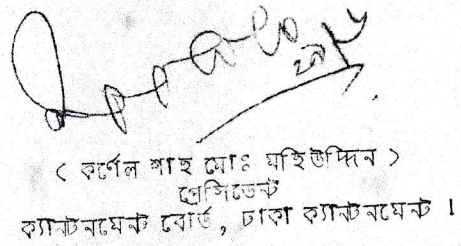 ( কর্ণেল শাহ মোঃ মহিউদ্দিন )
প্রেসিডেন্ট
ক্যান্টনমেন্ট বোর্ড, ঢাকা ক্যান্টনমেন্ট ।